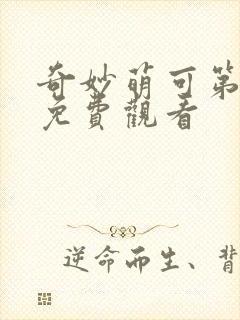 奇妙萌可第
免費觀看
逆命而生、背